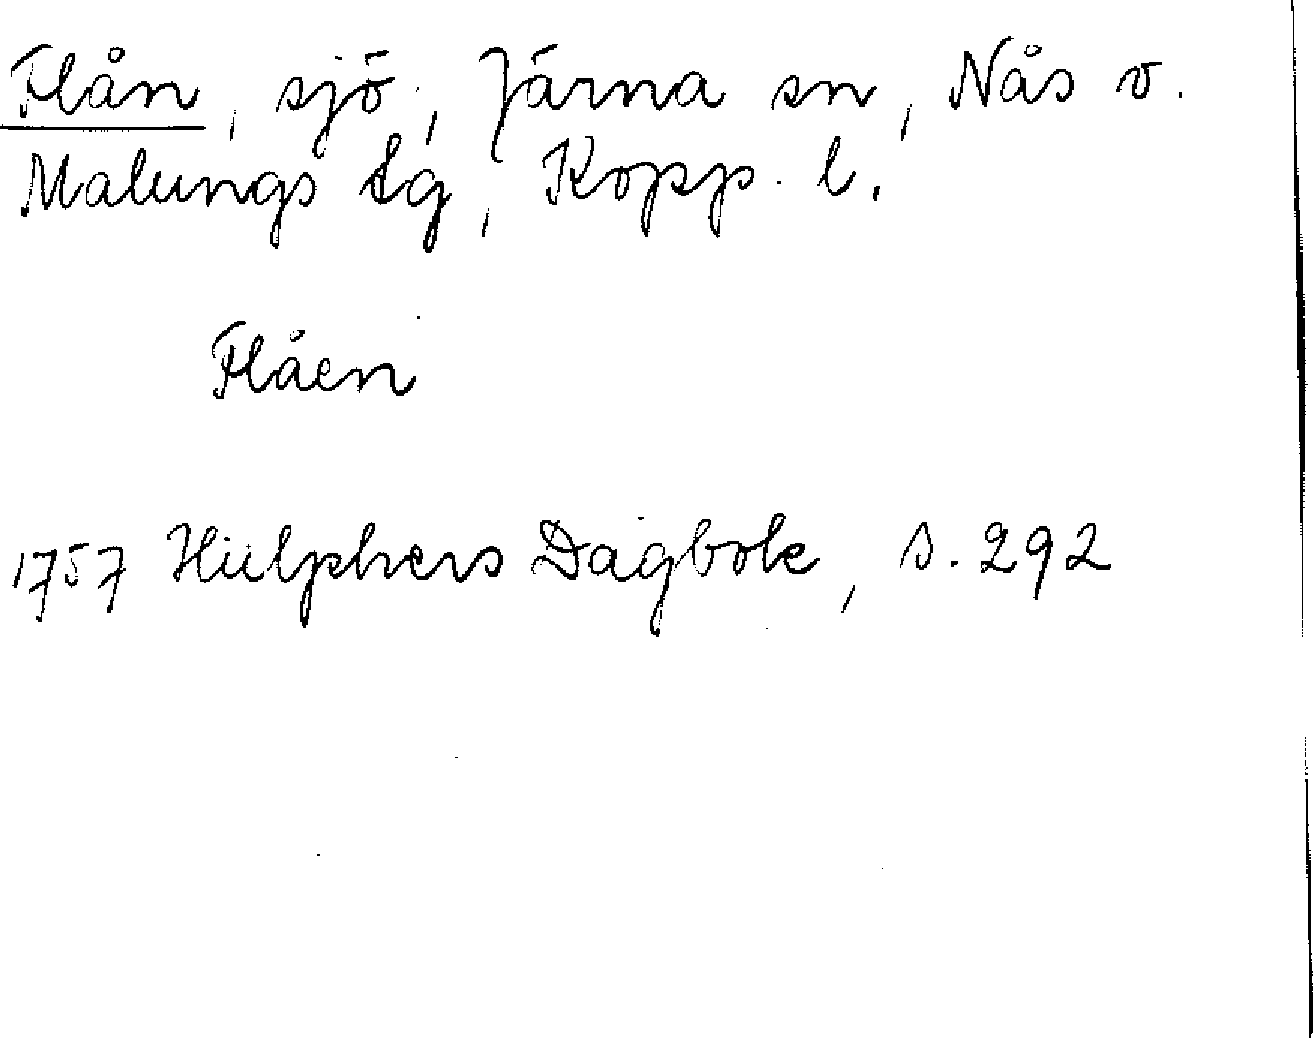 Flån, sjö, Järna sn, Nås o.
Malungs tg, Kopp. l.
Flåen
1757 Hülphers Dagbok, s. 292